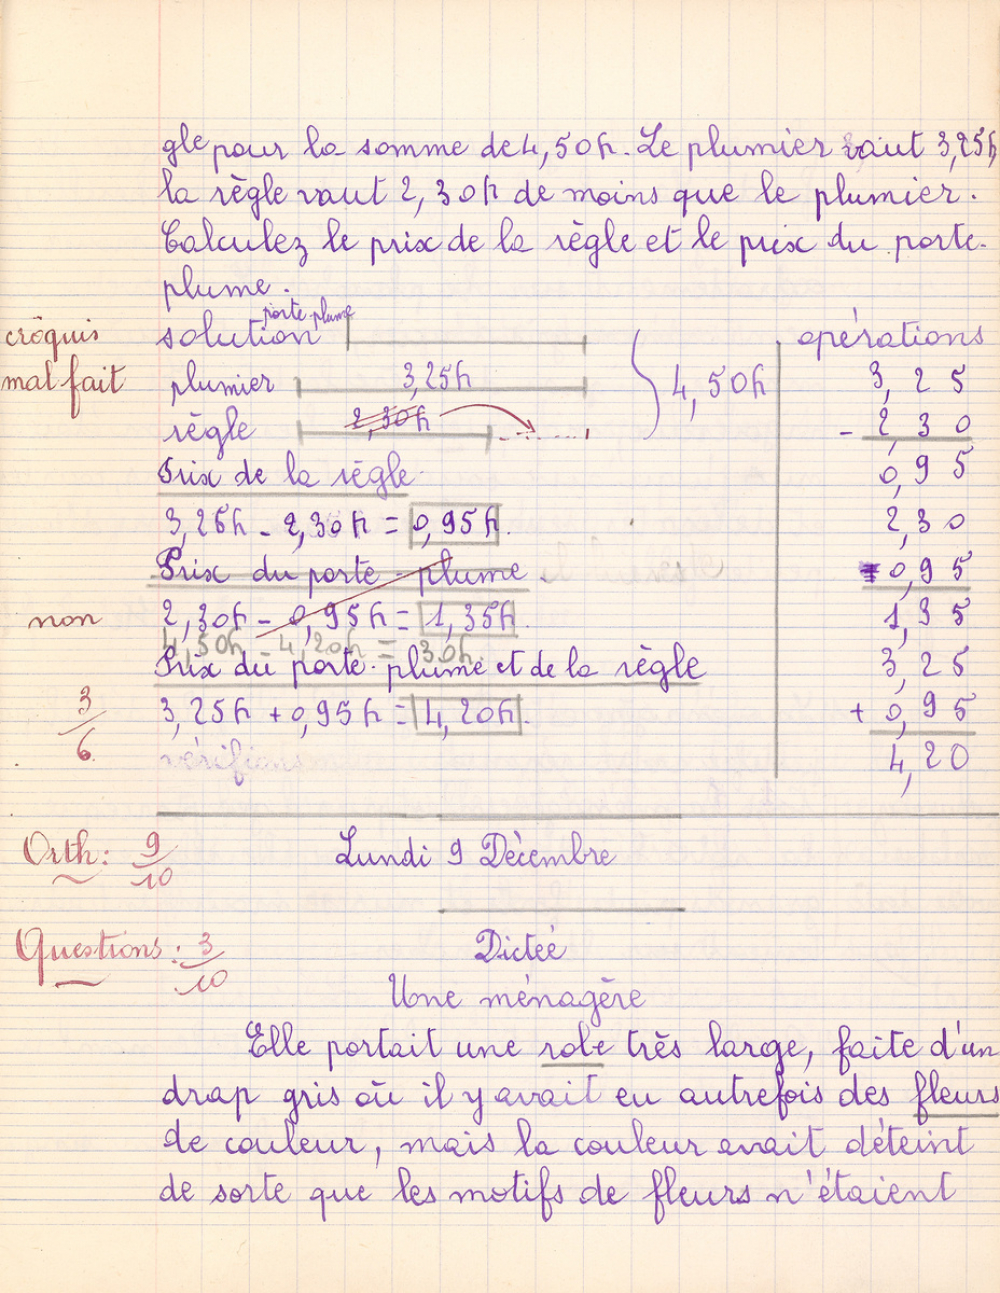 gle pour la somme de 4,50 fr. Le plumier vaut 3,25 fr
la règle vaut 2,30 fr de moins que le plumier.
Calculez le prix de la règle et le prix du porte-
plume.
crôquis
mal fait
solution
porte-plume
plumier 3,25 fr
règle 2,30 fr
4,50 fr
opérations
3,25
- 2,30
0,95
2,30
- 0,95
1,35
3,25
+ 0,95
4,20
Prix de la règle.
3,25 fr - 2,30 fr = 0,95 fr.
Prix du porte-plume
non
2,30 fr - 0,95 fr = 1,35 fr.
4,50 fr - 4,20 fr = 30 fr.
Prix du porte-plume et de la règle
3/6
3,25 fr + 0,95 fr = 4,20 fr.
vérifions
Orth: 9/10
Lundi 9 Décembre
Questions: 3/10
Dicteé
Une ménagère
Elle portait une robe très large, faite d'un
drap gris où il y avait eu autrefois des fleurs
de couleur, mais la couleur avait déteint
de sorte que les motifs de fleurs n'étaient